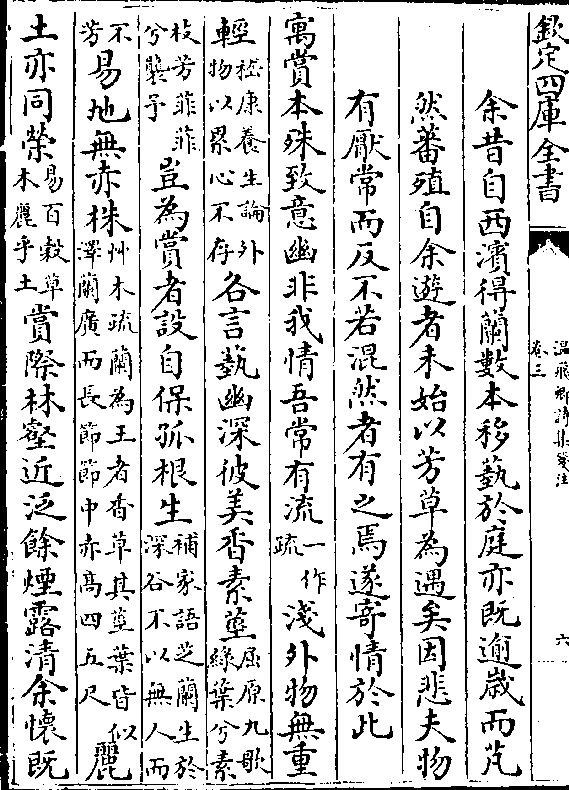 欽定四庫全書
溫飛卿詩集箋注
卷三
六
余昔自西濱得蘭數本移藝於庭亦既逾歲而芃
然蕃殖自余遊者未始以芳草為遇矣因悲夫物
有厭常而反不若混然者有之焉遂寄情於此
寓賞本殊致意幽非我情吾常有流一作疏淺外物無重
輕嵇康養生論外物以累心不存各言藝幽深彼美香素莖屈原九歌綠葉兮素
枝芳菲菲兮襲予豈為賞者設自保孤根生補家語芝蘭生於深谷不以無人而
不芳易地無赤株艸木疏蘭為王者香草其莖葉皆似澤蘭廣而長節節中赤高四五尺麗
土亦同榮易百穀草木麗乎土賞際林壑近泛餘煙露清余懷既